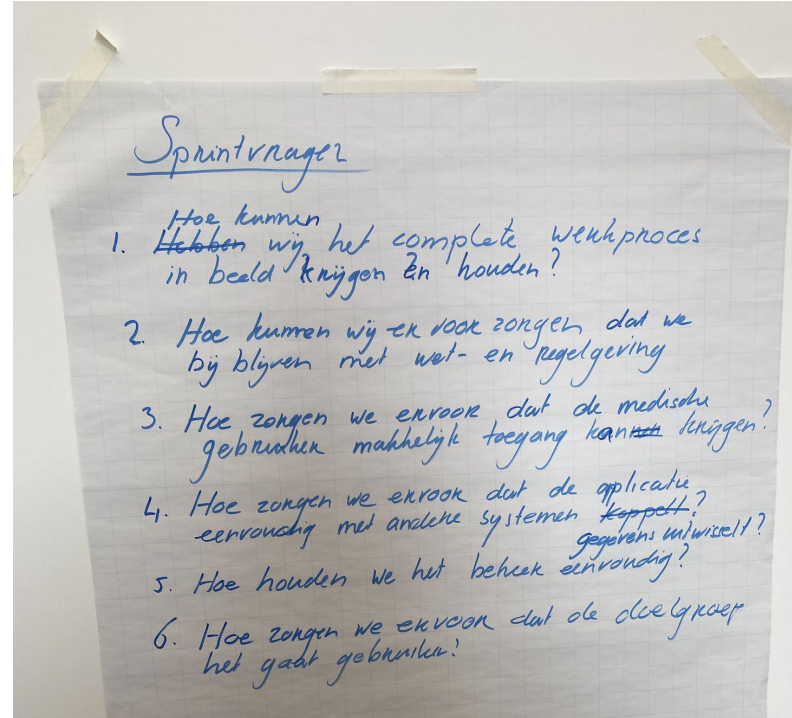 Sprintvragen
Hoe kunnen
1. Hebben wij het complete werkproces
in beeld krijgen en houden?
2. Hoe kunnen wij er voor zorgen dat we
bij blijven met wet- en regelgeving
3. Hoe zorgen we ervoor dat de medische
gebruiker makkelijk toegang kan krijgen?
4. Hoe zorgen we ervoor dat de applicatie
eenvoudig met andere systemen koppelt?
gegevens uitwisselt?
5. Hoe houden we het beheer eenvoudig?
6. Hoe zorgen we ervoor dat de doelgroep
het gaat gebruiken?